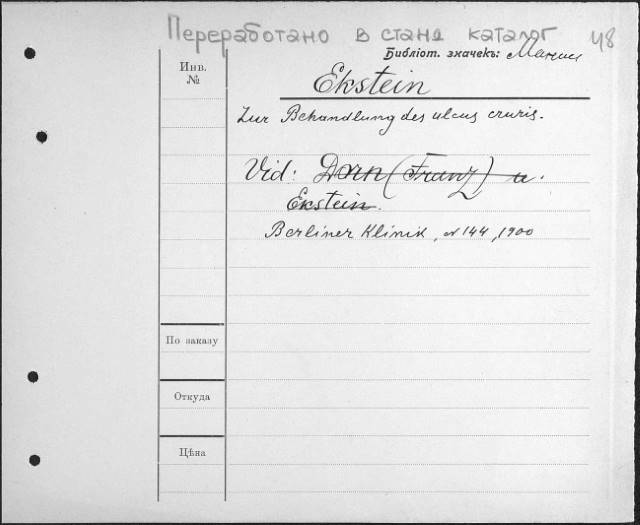 Переработано в станд каталог 48
Библіот. значекъ:
Инв.
№
Ekstein
Zur Behandlung des ulcus cruris.
Vid: Dorn (Franz) u.
Ekstein.
Berliner Klinik, № 144, 1900
По заказу
Откуда
Цѣна